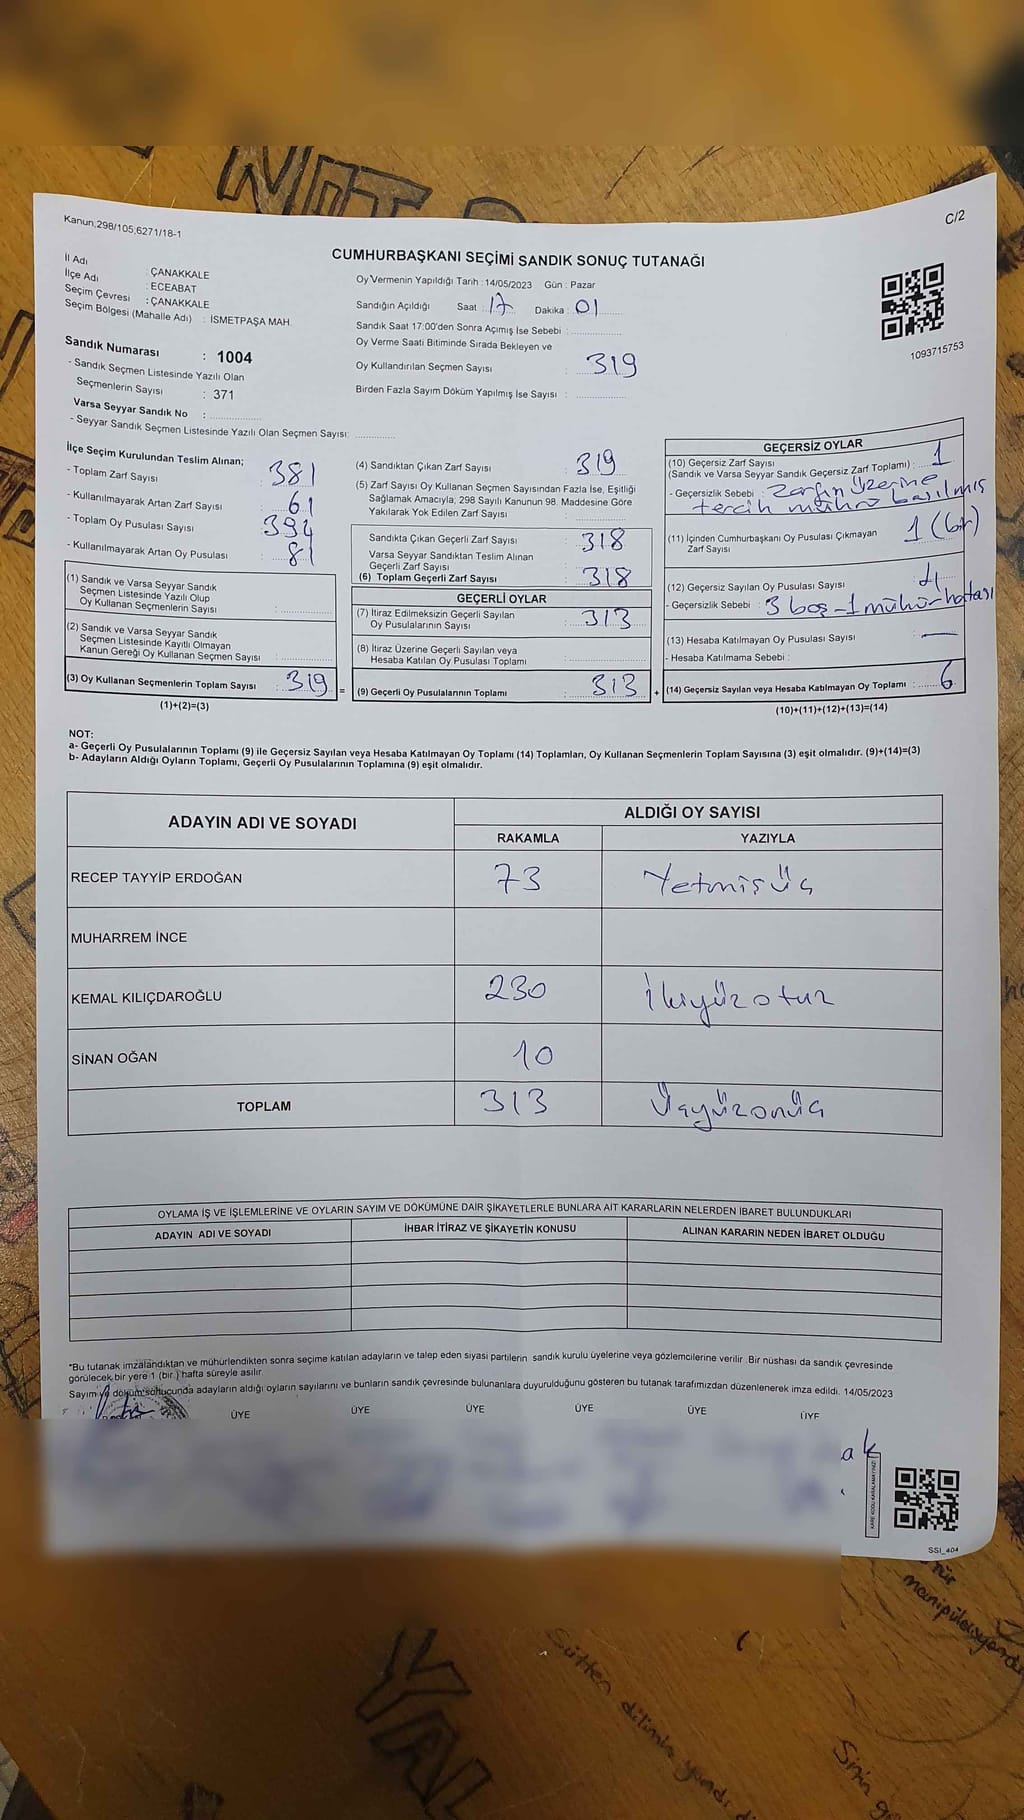 NOT
Kanun;298/105,6271/18-1
C/2
CUMHURBAŞKANI SEÇİMİ SANDIK SONUÇ TUTANAĞI
İl Adı : ÇANAKKALE
İlçe Adı : ECEABAT
Seçim Çevresi : ÇANAKKALE
Seçim Bölgesi (Mahalle Adı) : İSMETPAŞA MAH.
Sandık Numarası : 1004
- Sandık Seçmen Listesinde Yazılı Olan
Seçmenlerin Sayısı : 371
Varsa Seyyar Sandık No :
- Seyyar Sandık Seçmen Listesinde Yazılı Olan Seçmen Sayısı:
Oy Vermenin Yapıldığı Tarih : 14/05/2023 Gün : Pazar
Sandığın Açıldığı Saat : 17 Dakika : 01
Sandık Saat 17:00'den Sonra Açımış İse Sebebi :
Oy Verme Saati Bitiminde Sırada Bekleyen ve
Oy Kullandırılan Seçmen Sayısı : 319
Birden Fazla Sayım Döküm Yapılmış İse Sayısı :
1093715753
İlçe Seçim Kurulundan Teslim Alınan;
- Toplam Zarf Sayısı : 381
- Kullanılmayarak Artan Zarf Sayısı : 61
- Toplam Oy Pusulası Sayısı : 394
- Kullanılmayarak Artan Oy Pusulası : 81
(1) Sandık ve Varsa Seyyar Sandık
Seçmen Listesinde Yazılı Olup
Oy Kullanan Seçmenlerin Sayısı :
(2) Sandık ve Varsa Seyyar Sandık
Seçmen Listesinde Kayıtlı Olmayan
Kanun Gereği Oy Kullanan Seçmen Sayısı :
(3) Oy Kullanan Seçmenlerin Toplam Sayısı : 319 =
(1)+(2)=(3)
(4) Sandıktan Çıkan Zarf Sayısı : 319
(5) Zarf Sayısı Oy Kullanan Seçmen Sayısından Fazla İse, Eşitliği
Sağlamak Amacıyla; 298 Sayılı Kanunun 98. Maddesine Göre
Yakılarak Yok Edilen Zarf Sayısı :
Sandıkta Çıkan Geçerli Zarf Sayısı : 318
Varsa Seyyar Sandıktan Teslim Alınan
Geçerli Zarf Sayısı :
(6) Toplam Geçerli Zarf Sayısı : 318
GEÇERLİ OYLAR
(7) İtiraz Edilmeksizin Geçerli Sayılan
Oy Pusulalarının Sayısı : 313
(8) İtiraz Üzerine Geçerli Sayılan veya
Hesaba Katılan Oy Pusulası Toplamı :
(9) Geçerli Oy Pusulalarının Toplamı : 313 +
GEÇERSİZ OYLAR
(10) Geçersiz Zarf Sayısı
(Sandık ve Varsa Seyyar Sandık Geçersiz Zarf Toplamı) : 1
- Geçersizlik Sebebi : Zarfın üzerine
tercih mührü basılmış
(11) İçinden Cumhurbaşkanı Oy Pusulası Çıkmayan
Zarf Sayısı 1 (bir)
(12) Geçersiz Sayılan Oy Pusulası Sayısı : 4
- Geçersizlik Sebebi : 3 boş - 1 mühür hatası
(13) Hesaba Katılmayan Oy Pusulası Sayısı : —
- Hesaba Katılmama Sebebi :
(14) Geçersiz Sayılan veya Hesaba Katılmayan Oy Toplamı : 6
(10)+(11)+(12)+(13)=(14)
NOT:
a- Geçerli Oy Pusulalarının Toplamı (9) ile Geçersiz Sayılan veya Hesaba Katılmayan Oy Toplamı (14) Toplamları, Oy Kullanan Seçmenlerin Toplam Sayısına (3) eşit olmalıdır. (9)+(14)=(3)
b- Adayların Aldığı Oyların Toplamı, Geçerli Oy Pusulalarının Toplamına (9) eşit olmalıdır.
ADAYIN ADI VE SOYADI
ALDIĞI OY SAYISI
RAKAMLA YAZIYLA
RECEP TAYYİP ERDOĞAN 73 Yetmişüç
MUHARREM İNCE
KEMAL KILIÇDAROĞLU 230 İkiyüzotuz
SİNAN OĞAN 10
TOPLAM 313 Üçyüzonüç
OYLAMA İŞ VE İŞLEMLERİNE VE OYLARIN SAYIM VE DÖKÜMÜNE DAİR ŞİKAYETLERLE BUNLARA AİT KARARLARIN NELERDEN İBARET BULUNDUKLARI
ADAYIN ADI VE SOYADI İHBAR İTİRAZ VE ŞİKAYETİN KONUSU ALINAN KARARIN NEDEN İBARET OLDUĞU
*Bu tutanak imzalandıktan ve mühürlendikten sonra seçime katılan adayların ve talep eden siyasi partilerin sandık kurulu üyelerine veya gözlemcilerine verilir .Bir nüshası da sandık çevresinde
görülecek bir yere 1 (bir ) hafta süreyle asılır.
Sayım ve döküm sonucunda adayların aldığı oyların sayılarını ve bunların sandık çevresinde bulunanlara duyurulduğunu gösteren bu tutanak tarafımızdan düzenlenerek imza edildi. 14/05/2023
ÜYE ÜYE ÜYE ÜYE ÜYE ÜYE
KARE KODU KARALAMAYINIZ!
SSI_404
YAL
Sütten dilimle yandı